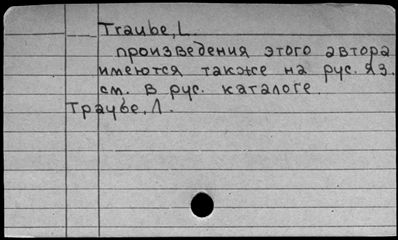 Traube, L.
произведения этого автора
имеются также на рус. яз.
см. в рус. каталоге.
Траубе, Л.